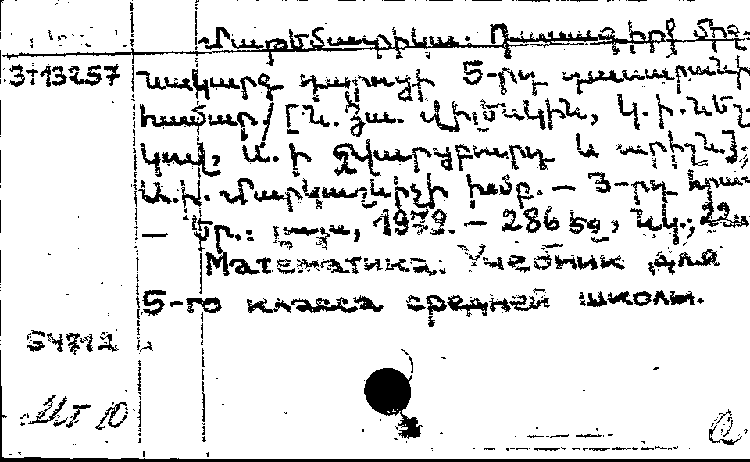 Մաթեմատիկա: Դասագիրք միջ-
3Т13257 նակարգ դպրոցի 5-րդ դասարանի
համար/ [Ն. Յա. Վիլենկին, Կ. Ի. Նեշ-
կով, Ս. Ի Շվարցբուրդ և ուրիշն.];
Ա. Ի. Մարկուշևիչի խմբ. — 3-րդ հրատ.
— Եր.: Լույս, 1972. — 286 էջ, նկ.; 22սմ
Математика. Учебник для
5-го класса средней школы.
54712